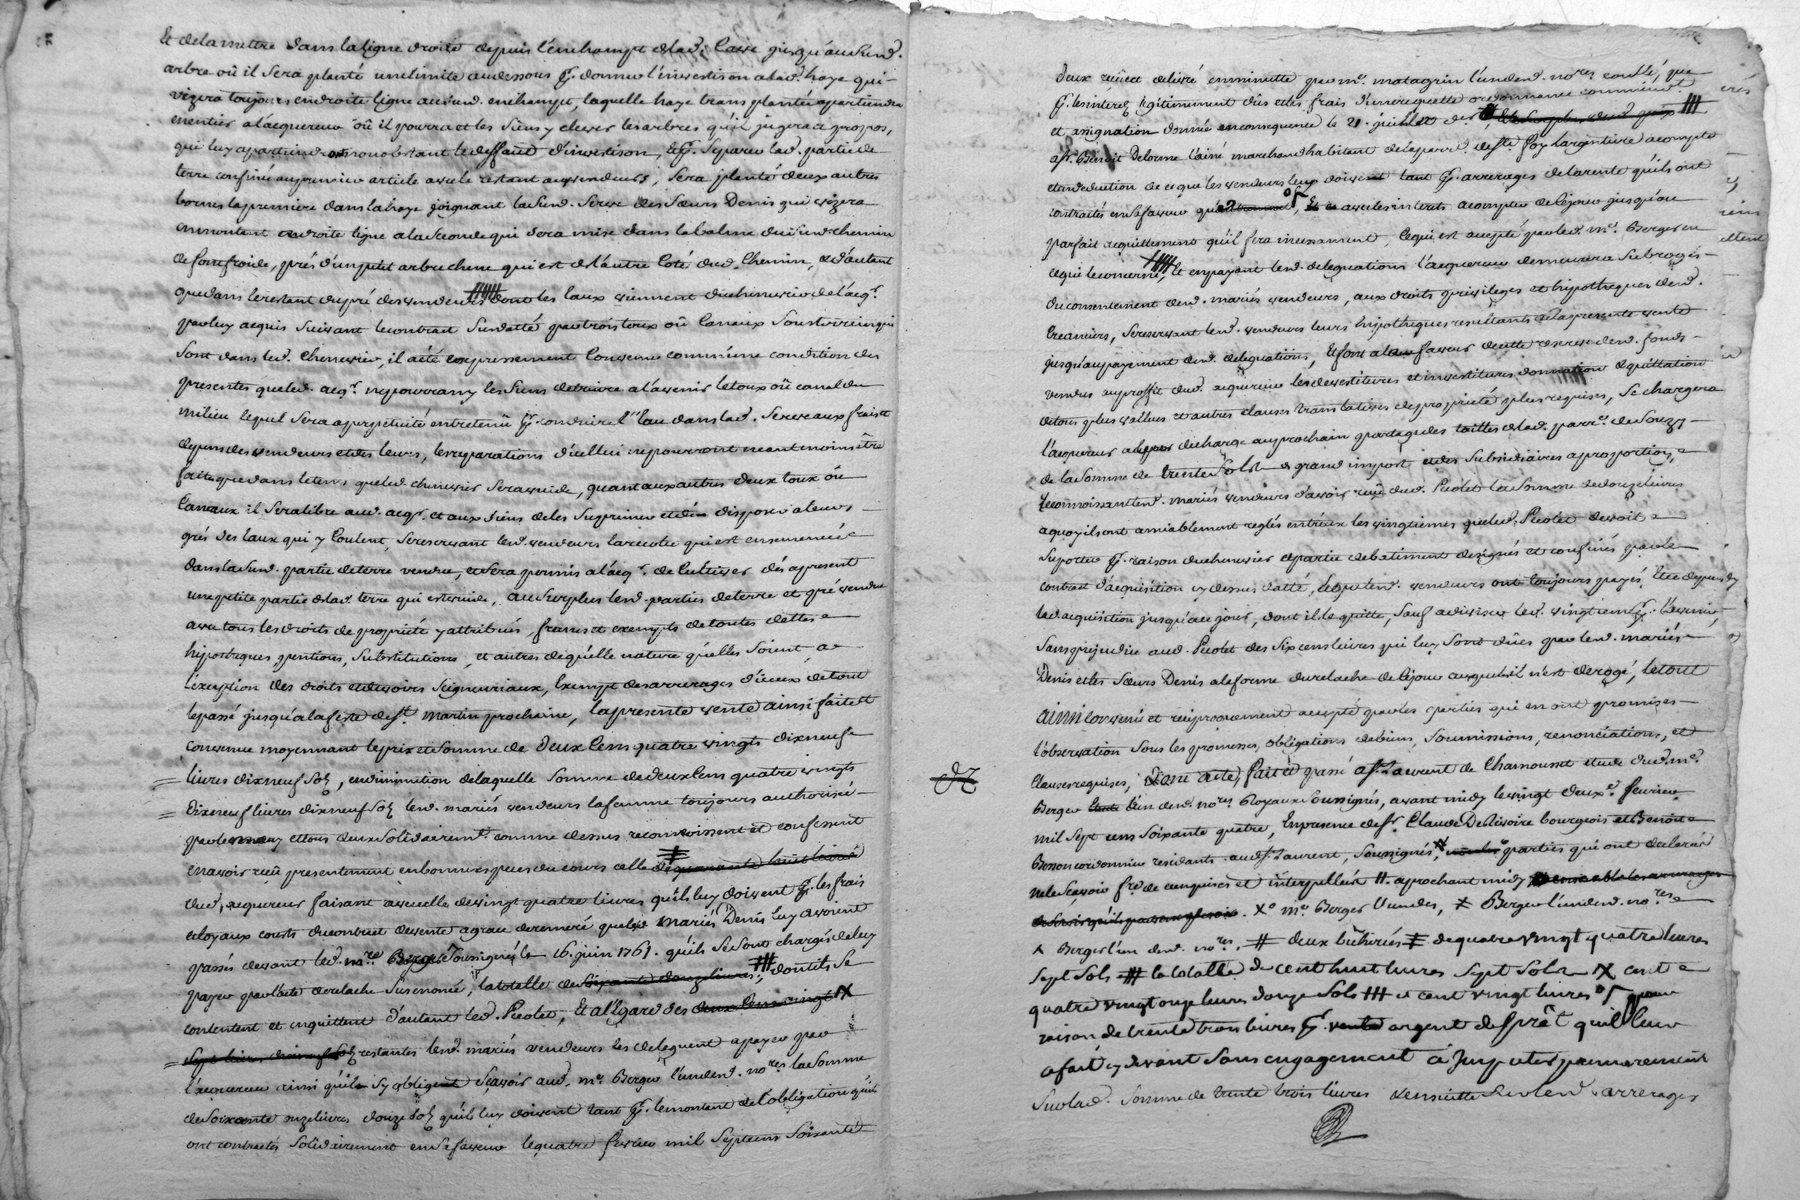 Et de la mettre dans la ligne droite depuis l'enchampt de lad. Caisse jusqu'au susd.
arbre où il sera planté une limite au dessous pr. donner l'investison a lad. haye qui
vizera toujours en droite ligne aud. enchampt, laquelle haye transplantée apartiendra
en entier a l'acquereur où il pourra et les siens y elever les arbres qu'il jugera a propos,
qui luy apartiendront nonobstant le deffaut d'investison, & pr. separer lad. partie de
terre confinée au premier article avec le restant aux vendeurs, sera planté deux autres
bornes la premiere dans la haye joignant la susd. terre des sœurs Denis qui vizera
en montant en droite ligne a la seconde qui sera mise dans la balme du susd. chemin
de font froide, près d'un petit arbre chene qui est de l'autre côté dud. chemin, & d'autant
que dans le restant du pré des vendeurs dont les eaux viennent du chenevier de l'acqr.
par luy acquis suivant le contrat susdatté par trois toux où canaux sousterrein qui
sont dans led. chenevier, il a été expressement convenu comme une condition des
presentes que led. acqr. ne pourra ny les siens detruire a l'avenir le toux où canal du
milieu lequel sera a perpetuité entretenû pr. conduire l'eau dans lad. serve aux frais et
depens des vendeurs et des leurs, les reparations d'icelluy ne pourront neantmoins être
faites que dans le tems que led. chenevier sera vuide, quant aux autres deux toux où
canaux il sera libre aud. acqr. et aux siens de les suprimer et de disposer a leurs
grés des eaux qui y coulent, se reservant led. vendeurs la recolte qui est ensemencée
dans la susd. partie de terre vendue, et sera permis a l'acqr. de cultiver dès apresent
une petite partie de lad. terre qui est vuide, au surplus led. parties de terre et pré vendues
avec tous les droits de proprieté y attribués, francs et exempts de toutes dettes
hipotheques, pentions, substitutions, et autres de quelle nature qu'elles soient, a
l'exeption des droits et devoirs seigneuriaux, exempt des arrerages d'iceux de tout
le passé jusqu'a la feste de st. martin prochaine, la presente vente ainsi faite et
convenue moyennant le prix et somme de deux cens quatre vingts dix neuf
livres dix neuf sols, en diminution de laquelle somme de deux cens quatre vingts
dix neuf livres dix neuf sols led. mariés vendeurs la femme toujours authorisée
par le mary et tous deux solidairemt. comme dessus reconnoissent et confessent
en avoir reçû presentement en bonnes especes du cours celle de quarante huit livres
dud. acquereur faisant avec celle de vingt quatre livres qu'ils luy doivent pr. les frais
et loyaux couts du contrat de vente a grace de remeré que les mariés Denis luy avoient
passés devant led. me. Berger soussigné le 16. juin 1761. qu'ils se sont chargés de luy
payer par l'acte de relache susenoncé, la totalle de soixante douze livres, dont ils se
contentent et en quittent d'autant led. Picolet, Et a l'égard des deux cens vingt
sept livres dix neuf sols restantes led. mariés vendeurs les deleguent a payer par
l'acquereur ainsi qu'il s'y obligent sçavoir aud. me. Berger l'un desd. nores. la somme
de soixante onze livres douze sols qu'ils luy doivent tant pr. le montant de l'obligation qu'ils
ont contractés solidairement en sa faveur le quatre fevrier mil septcens soixante
deux reçue et delivré en minutte par me. matagrin l'un desd. nores. controllé, que
pr. les interets legitimement dûs et les frais d'une requette ordonnance commission
et assignation donné en consequence le 21. juillet der.
a sr. Benoit Delorme l'ainé marchand habitant de la parr. de ste. foy l'argentiere acompte
et en deduction de ce que les vendeurs leur doivent tant pr. arrerages de la rente qu'ils ont
contractés en sa faveur que avec les interets a compter de ce jour jusqu'au
parfait aquittement qu'il fera incessament, ce qui est accepté par led. me. Berger en
ce qui le concerne, Et en payant led. delegations l'acquereur demeurera subrogé
du consentement desd. mariés vendeurs, aux droits privileges et hypotheques desd.
creanciers, se reservant led. vendeurs leurs hipotheques resultants de la presente vente
jusqu'au payement desd. delegations, & font a leur faveur de cette reserve desd. fonds
vendus au proffit dud. acquereur les devestitures et investitures donnation & quittation
de tous plus vallues et autres clauses translatives de proprieté plus requises, se chargera
l'acquereur a leur decharge au prochain partage des tailles de lad. parr. de Souzy
de la somme de trente sols de grand import et des subsidiaires a proportion,
reconnoissant led. mariés vendeurs d'avoir reçû dud. Picolet la somme de douze livres
a quoy ils ont amiablement reglés entr'eux les vingtiemes que led. Picolet devoit
suporter pr. raison du chenevier & partie de batiment designés et confinés par le
contrat d'acquisition cy dessus datté, lequel led. vendeurs ont toujours payés, Et ce depuis
lad. acquisition jusqu'a ce jour, dont ils le quitte, sauf a diviser led. vingtiemes pr. l'avenir,
sans prejudice aud. Picolet des six cens livres qui luy sont dûes par led. mariés
Denis et les sœurs Denis a la forme du relache de ce jour auquel il n'est derogé, le tout
ainsi convenu et reciproquement accepté par les parties qui en ont promises
l'observation sous les promesses, obligations de biens, soumissions, renonciations, et
clauses requises, Dont acte, fait & passé a st. Laurent de Chamousset etude dud. me.
Berger l'un desd. nores. Royaux soussignés, avant midy le vingt deuxe. fevrier
mil sept cens soixante quatre, En presence de sr. Claude Delivoire bourgeois et Benoit
Besson cordonnier residants aud. st. Laurent, soussignés, parties qui ont declarés
ne le sçavoir fre. de ce enquises et interpellées # aprochant midy
Xo me. Berger l'un des, ≠ Berger l'un desd. nores.
x Berger l'un desd. nores. # deux bichérées ≠ de quatre vingt quatre livres
sept sols # la totalle de cent huit livres sept sols X cent
quatre vingt onze livres douze sols ### et cent vingt livres pour
raison de trente trois livres pr. argent de prêt qu'il leur
a fait cy devant sans engagement à imputer premierement
sur lad. somme de trente trois livres & ensuitte sur led. arrerages